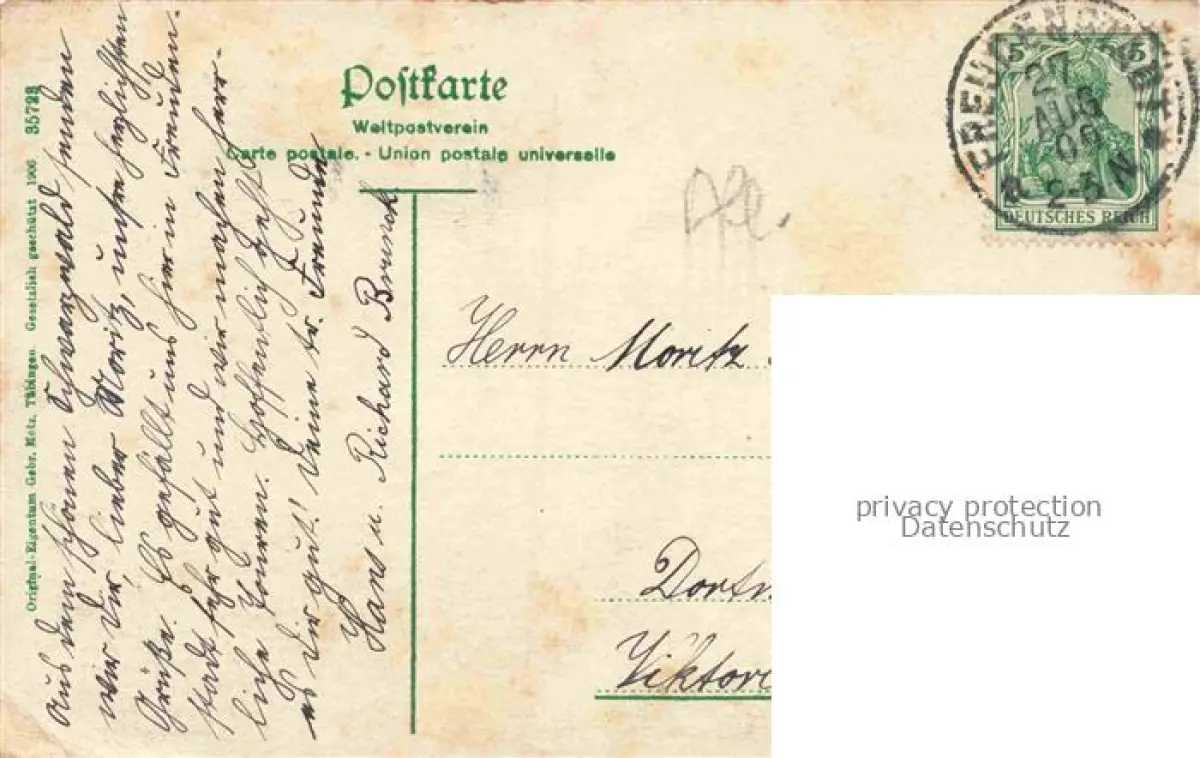 Postkarte
Weltpostverein
Carte postale. - Union postale universelle
35723
Original-Eigentum Gebr. Metz, Tübingen. Gesetzlich geschützt 1906
5 5
DEUTSCHES REICH
FREUDENSTADT
27
AUG
09
2-5 N
Aus dem schönen Schwarzwald senden
wir Dir, lieber Moritz, unsre herzlichsten
Grüße. Es gefällt uns hier in Freuden-
stadt sehr gut und wir machen herr-
liche Touren. Hoffentlich geht
es Dir gut! Deine tr. Freunde
Hans u. Richard Brunck
Herrn Moritz
Dortm
Viktori
privacy protection
Datenschutz